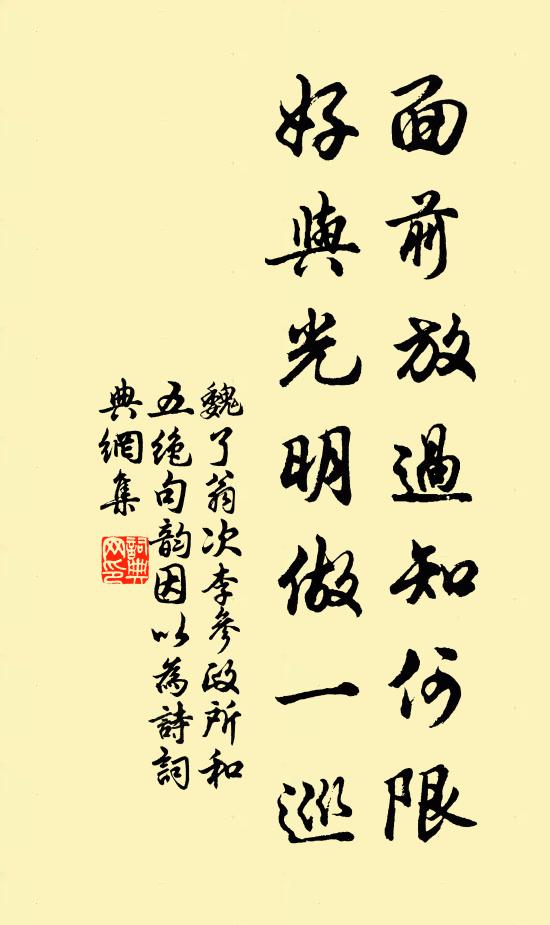 面前放過知何限
好與光明做一巡
魏了翁次李參政所和
五絶句韵因以為詩詞
典網集
詞典
网印